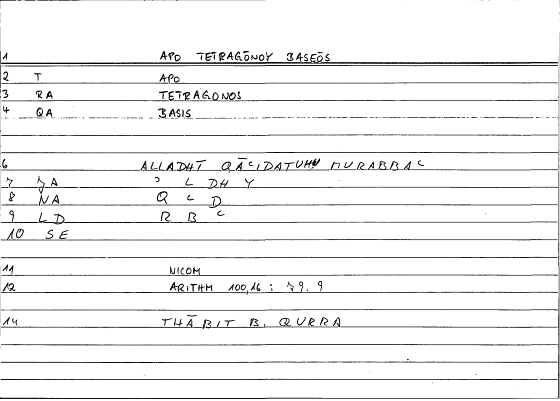 1 APO TETRAGŌNOY BASEŌS
2 T APO
3 RA TETRAGONOS
4 QA BASIS
6 ALLADHĪ QĀᶜIDATUHU MURABBAᶜ
7 ʒA ʾ L DH Y
8 NA Q ᶜ D
9 LD R B ᶜ
10 SE
11 NICOM
12 ARITHM 100,16 : 79. 9
14 THĀBIT B. QURRA